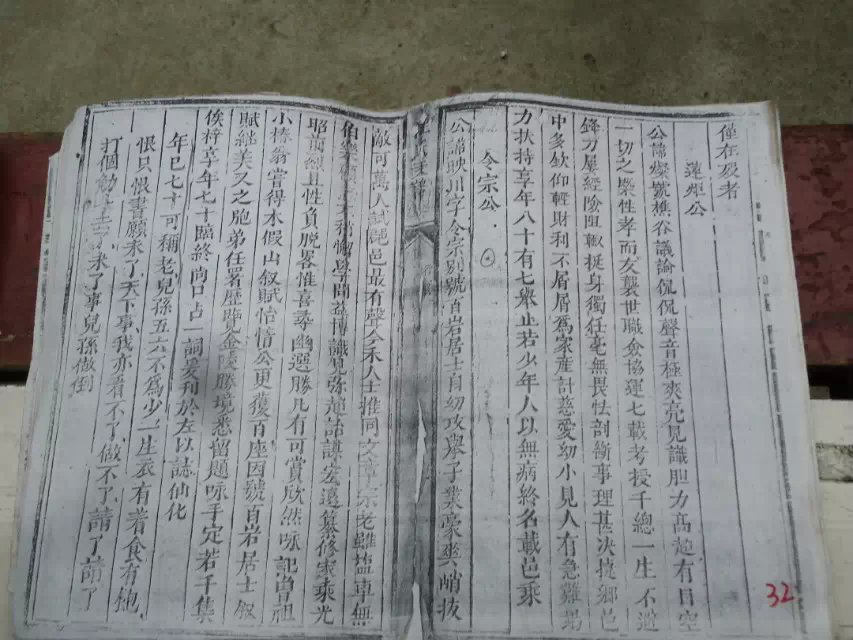 僅在殁者
蓮炬公
公諱燦號樵谷議論侃侃聲音極爽亮見識胆力高超有目空
一切之槩性孝而友襲世職僉協運七載考授千總一生不避
鋒刀屢經險阻輙挺身獨任毫無畏怯剖衡事理甚决捷鄉邑
中多欽仰輕財利不屑屑爲家産計慈愛幼小見人有急難竭
力扶持享年八十有七舉止若少年人以無病終名載邑乘
令宗公
公諱映川字令宗別號百岩居士自幼攻舉子業豪爽峭拔
敵可萬人試琵邑最有聲今禾人士推同文章宗老雖塩車無
伯樂學問益博識見弥超詣謨宏遠纂修家乘光
昭前烈且性負脫客惟喜尋幽選勝凡有可賞欣然咏記曾祖
小椿翁嘗得木假山叙賦怡情公更獲百座因號百岩居士叙
賦繼美又之胞弟任署歷時金陵勝境悉留題咏手定若干集
俟梓享年七十臨終尚口占一詞爰利於左以誌仙化
年已七十可稱老兒孫五六不爲少一生衣有着食有飽
恨只恨書願未了天下事我亦看不了做不了請了請了
打個觔斗去未了事兒孫做到
32